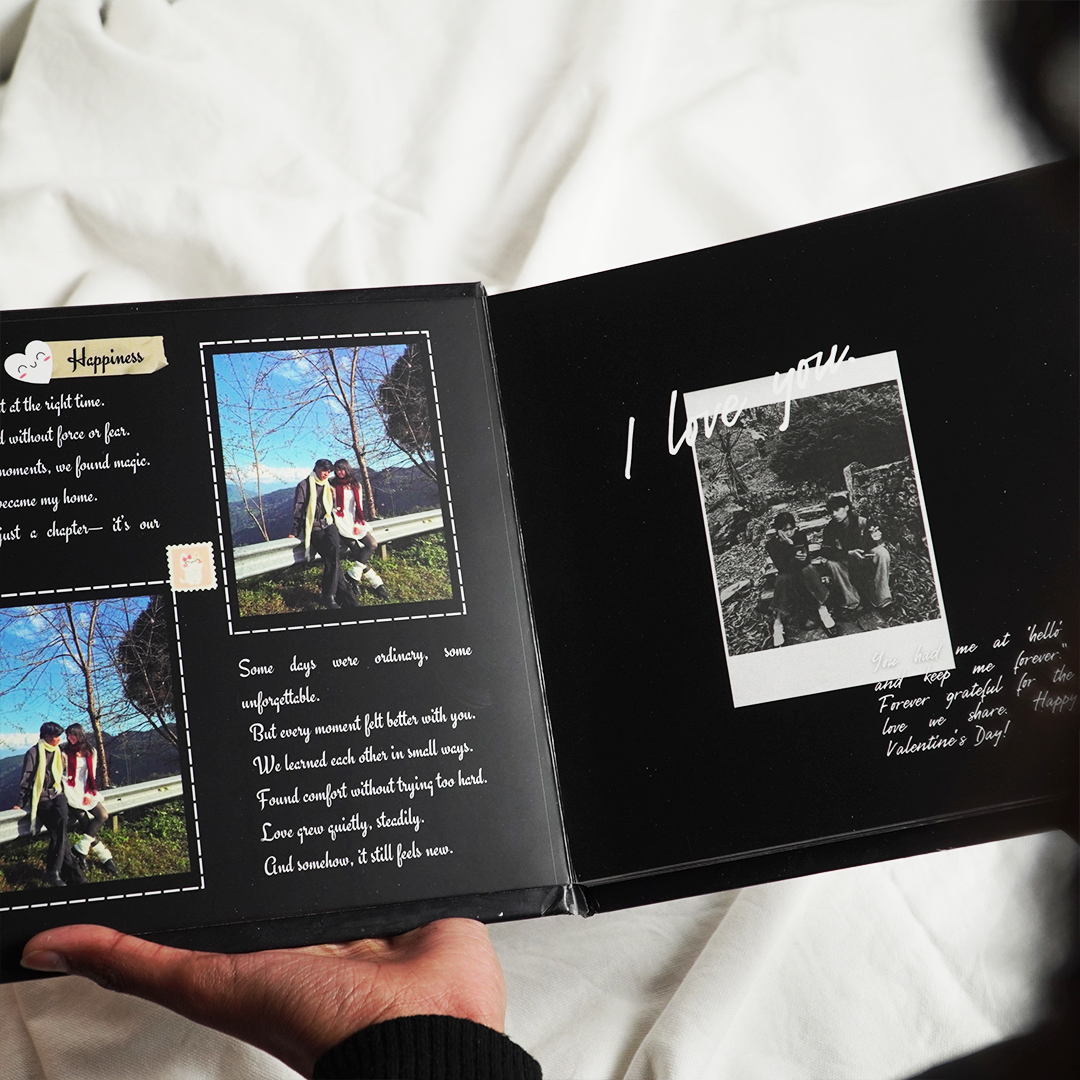 Happiness
t at the right time.
d without force or fear.
moments, we found magic.
became my home.
just a chapter— it's our
Some days were ordinary, some
unforgettable.
But every moment felt better with you.
We learned each other in small ways.
Found comfort without trying too hard.
Love grew quietly, steadily.
And somehow, it still feels new.
I love you.
You had me at 'hello'
and keep me forever."
Forever grateful for the
love we share. Happy
Valentine's Day!